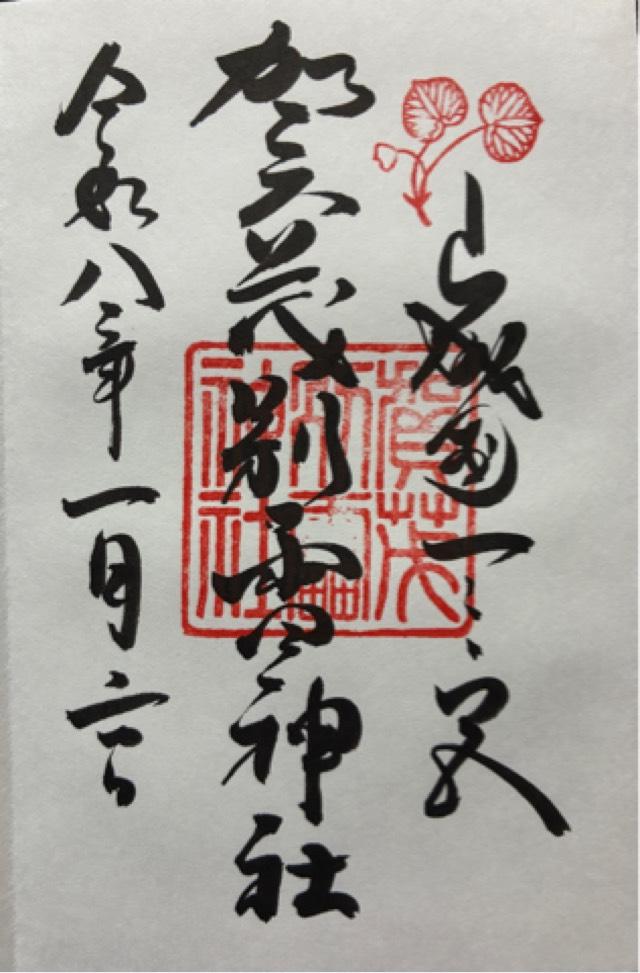 山城國一之宮
賀茂別雷神社
賀茂別雷神社
令和八年一月